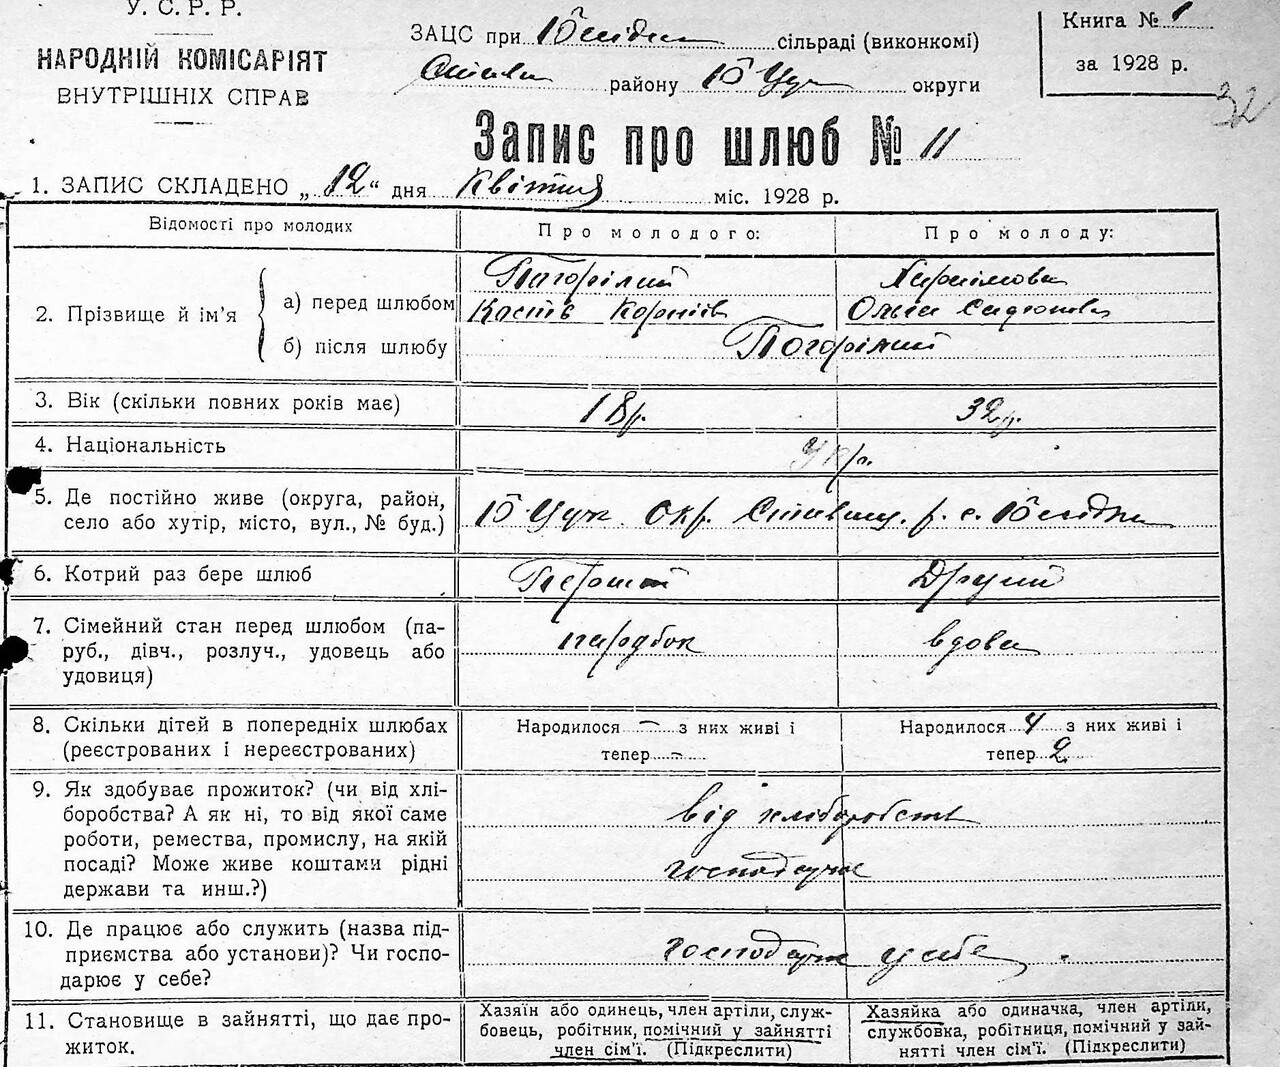 У. С. Р. Р.
НАРОДНІЙ КОМІСАРІЯТ
ВНУТРІШНІХ СПРАВ
ЗАЦС при сільраді (виконкомі)
району Б Церк округи
Книга № 1
за 1928 р.
32
Запис про шлюб № 11
1. ЗАПИС СКЛАДЕНО „ 12 “ дня Квітня міс. 1928 р.
Відомості про молодих
Про молодого:
Про молоду:
2. Прізвище й ім’я
а) перед шлюбом
Погорілий
Кость Корніїв
Ольга
б) після шлюбу
Погорілий
3. Вік (скільки повних років має)
18 р.
32 р.
4. Національність
Укр.
5. Де постійно живе (округа, район,
село або хутір, місто, вул., № буд.)
Б Церк. Окр. р. с.
6. Котрий раз бере шлюб
Перший
Другий
7. Сімейний стан перед шлюбом (па-
руб., дівч., розлуч., удовець або
удовиця)
парубок
вдова
8. Скільки дітей в попередніх шлюбах
(реєстрованих і нереєстрованих)
Народилося – з них живі і
тепер –
Народилося 4 з них живі і
тепер 2
9. Як здобуває прожиток? (чи від хлі-
боробства? А як ні, то від якої саме
роботи, ремества, промислу, на якій
посаді? Може живе коштами рідні
держави та инш.?)
від хліборобств
господарює
10. Де працює або служить (назва під-
приємства або установи)? Чи госпо-
дарює у себе?
господарює у себе
11. Становище в зайнятті, що дає про-
житок.
Хазяїн або одинець, член артіли, служ-
бовець, робітник, помічний у зайнятті
член сім’ї. (Підкреслити)
Хазяйка або одиначка, член артіли,
службовка, робітниця, помічний у зай-
нятті член сім’ї. (Підкреслити)